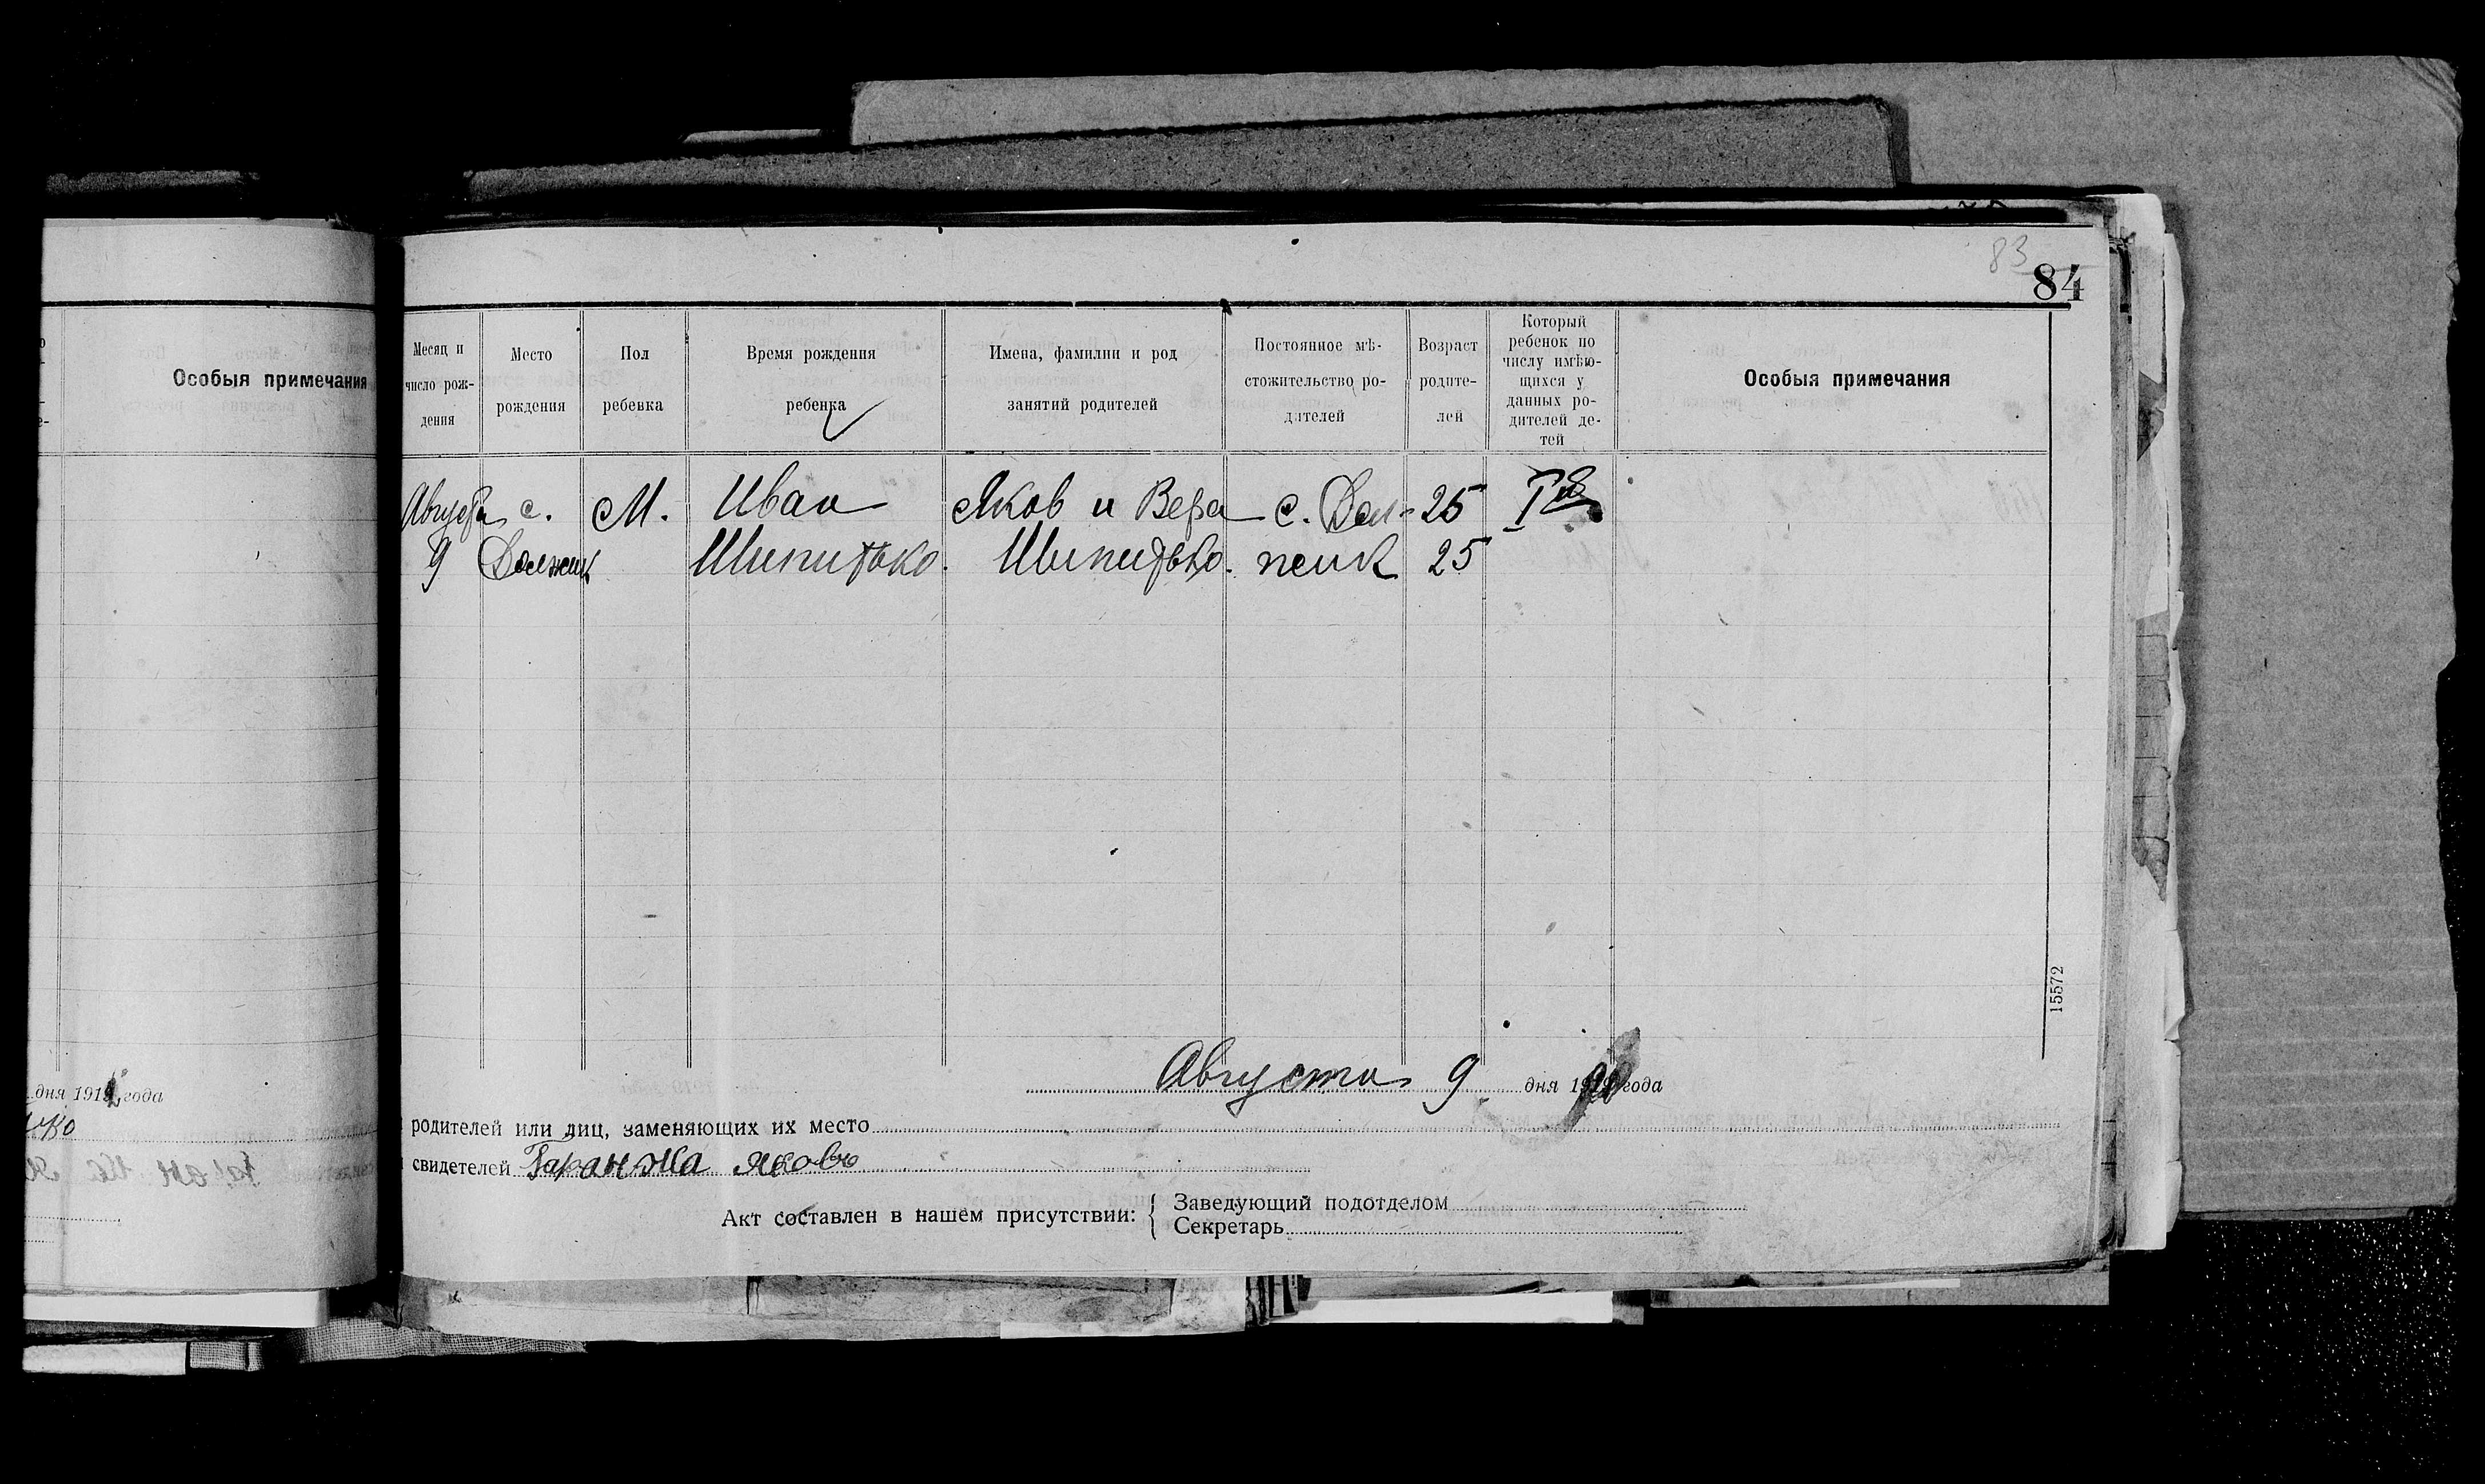 83
84
Особыя примечания
Месяц и
число рож-
дения
Место
рождения
Пол
ребенка
Время рождения
ребенка
Имена, фамилии и род
занятий родителей
Постоянное мѣ-
стожительство ро-
дителей
Возраст
родите-
лей
Который
ребенок по
числу имѣю-
щихся у
данных ро-
дителей де-
тей
Особыя примечания
Августа с. М. Иван Яков и Вера с. Дол- 25 Iый
9 Должик Шипитько. Шипитько. 25
15572
дня 191 года
Августа 9 дня 19 года
родителей или лиц, заменяющих их место
свидетелей Гаранжа Яковъ
Акт составлен в нашем присутствии:
Заведующий подотделом
Секретарь